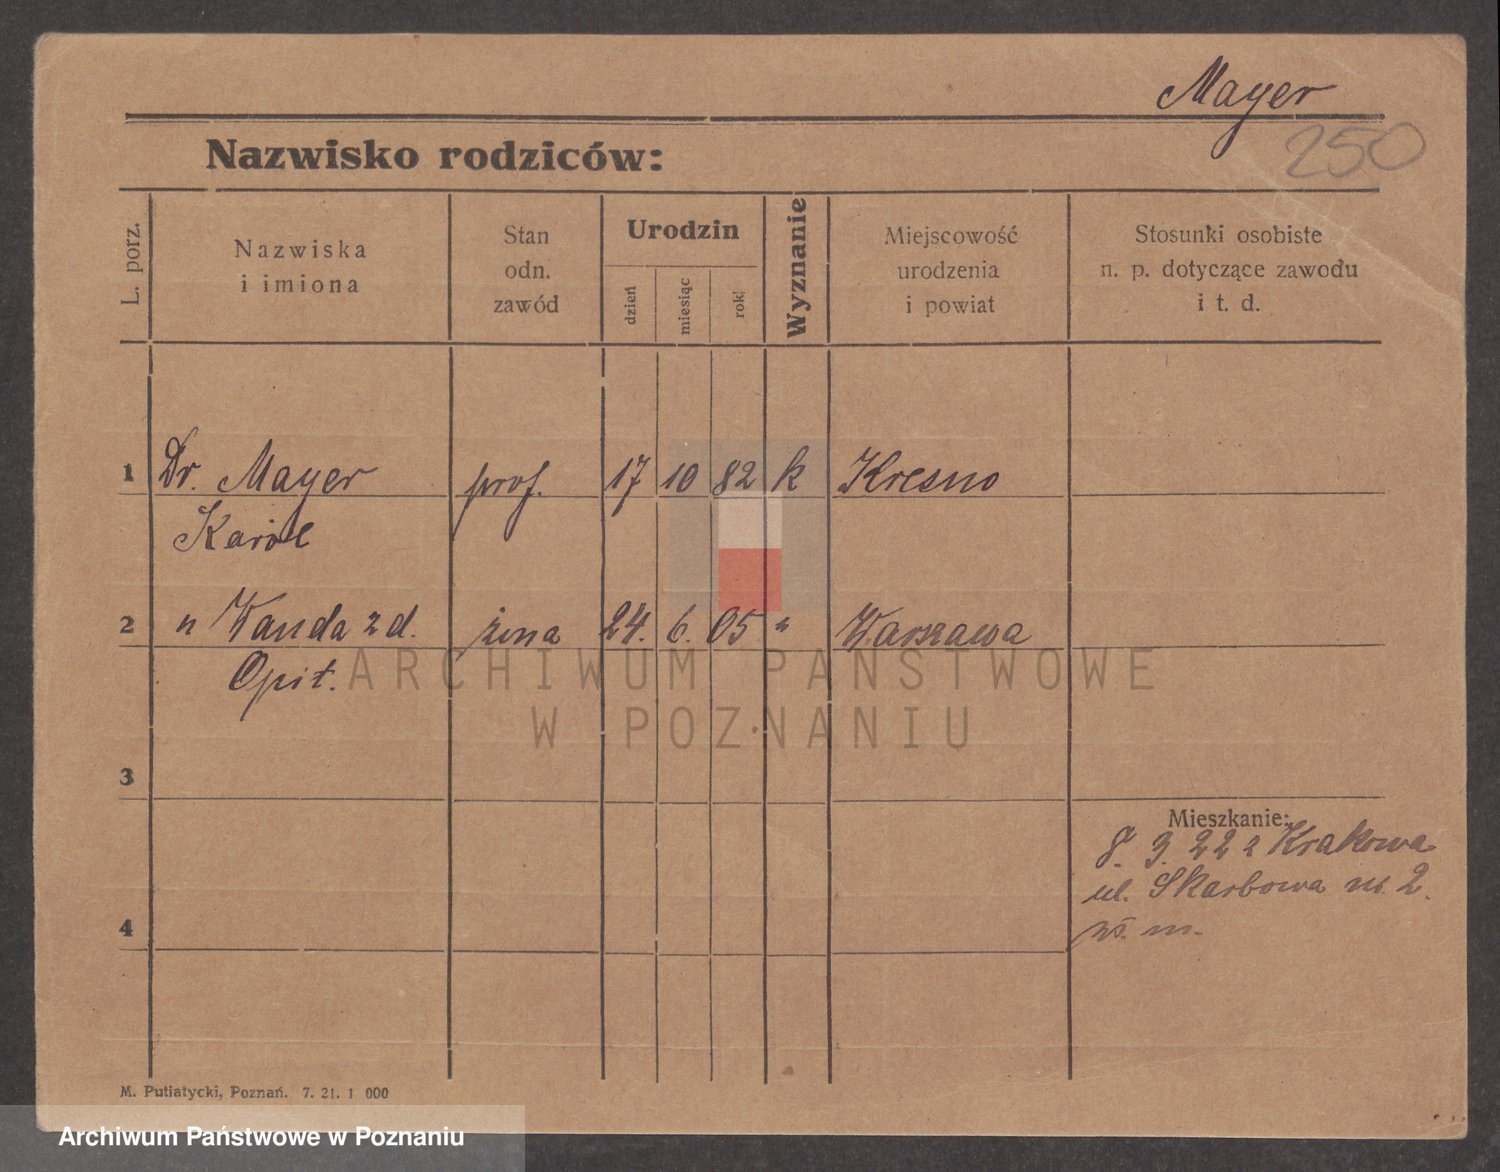 Mayer
250
Nazwisko rodziców:
L. porz.
Nazwiska
i imiona
Stan
odn.
zawód
Urodzin
dzień
miesiąc
rok
Wyznanie
Miejscowość
urodzenia
i powiat
Stosunki osobiste
n. p. dotyczące zawodu
i t. d.
1 Dr. Mayer prof. 17 10 82 k Kresno
Karol
2 " Wanda z d. żona 24. 6. 05 " Warszawa
Opit.
ARCHIWUM PAŃSTWOWE
W POZNANIU
3
Mieszkanie:
8. 3. 22 z Krakowa
ul. Skarbowa nr. 2.
4
M. Putiatycki, Poznań. 7. 21. 1 000
Archiwum Państwowe w Poznaniu